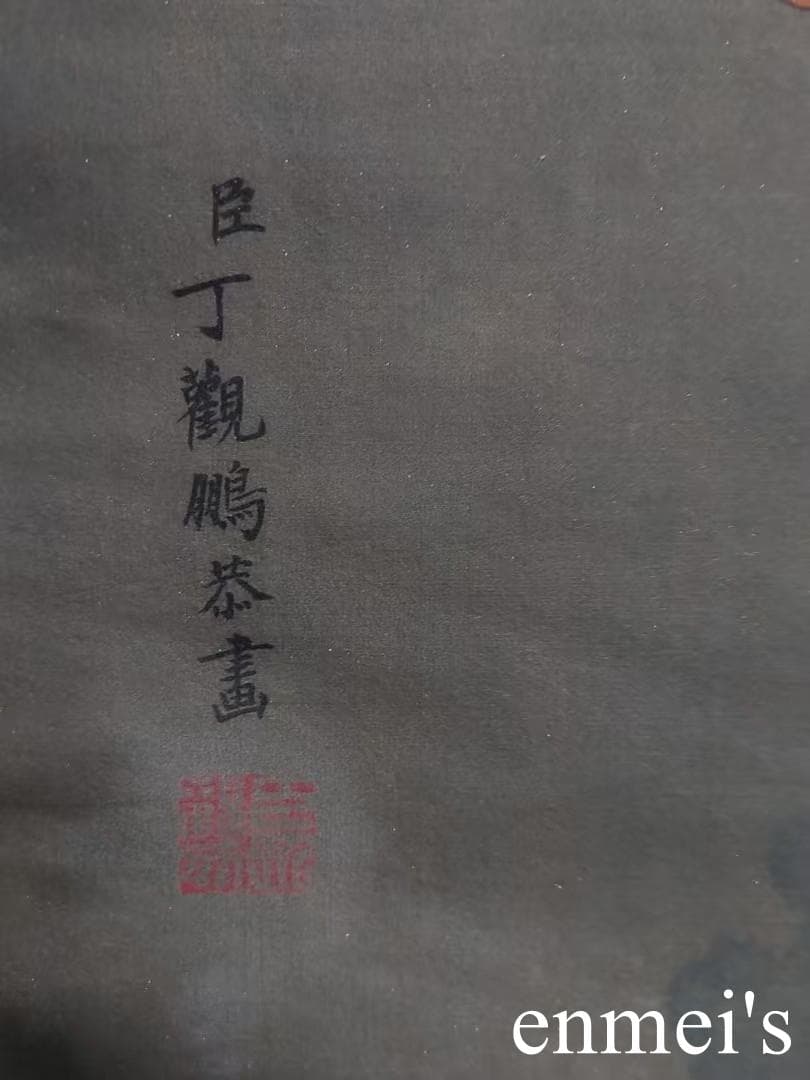 臣丁觀鵬恭畫
enmei's